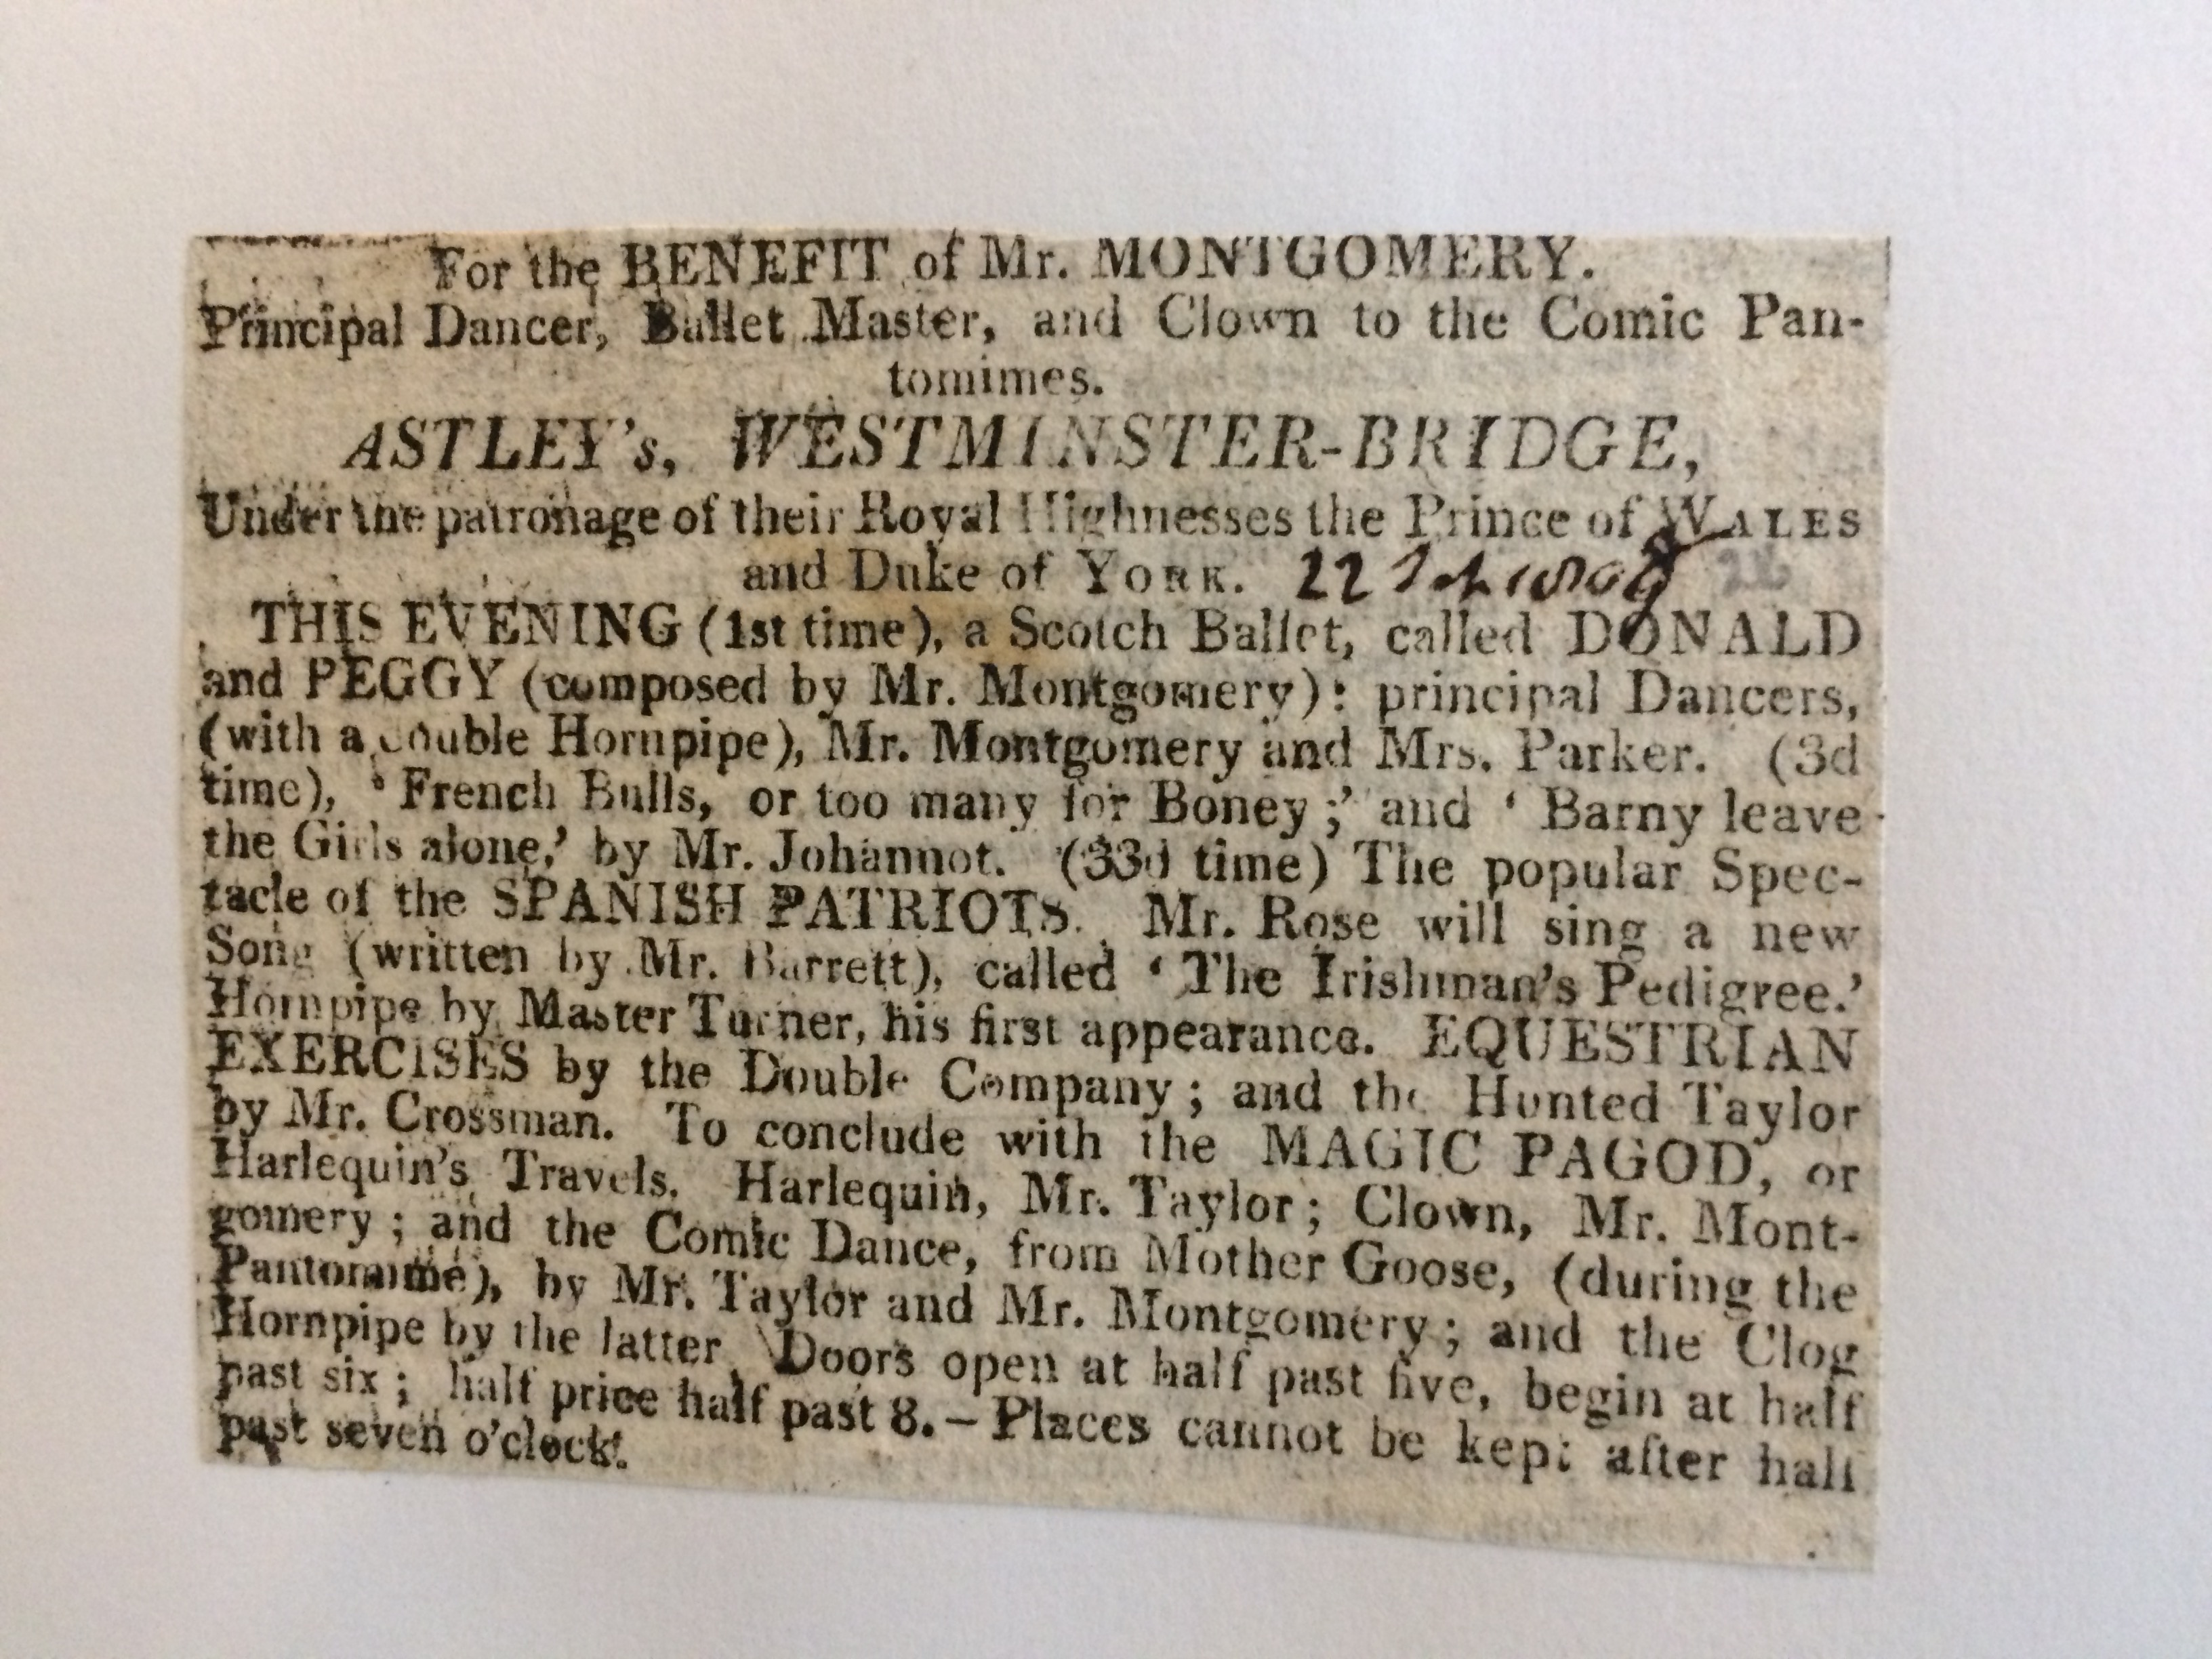 For the BENEFIT of Mr. MONTGOMERY.
Principal Dancer, Ballet Master, and Clown to the Comic Pan-
tomimes.
ASTLEY's, WESTMINSTER-BRIDGE,
Under the patronage of their Royal Highnesses the Prince of WALES
and Duke of YORK. 22
THIS EVENING (1st time), a Scotch Ballet, called DONALD
and PEGGY (composed by Mr. Montgomery): principal Dancers,
(with a double Hornpipe), Mr. Montgomery and Mrs. Parker. (3d
time), ‘French Bulls, or too many for Boney;’ and ‘Barny leave
the Girls alone,’ by Mr. Johannot. (33d time) The popular Spec-
tacle of the SPANISH PATRIOTS. Mr. Rose will sing a new
Song (written by Mr. Barrett), called ‘The Irishman's Pedigree.’
Hornpipe by Master Turner, his first appearance. EQUESTRIAN
EXERCISES by the Double Company; and the Hunted Taylor
by Mr. Crossman. To conclude with the MAGIC PAGOD, or
Harlequin's Travels. Harlequin, Mr. Taylor; Clown, Mr. Mont-
gomery; and the Comic Dance, from Mother Goose, (during the
Pantomime), by Mr. Taylor and Mr. Montgomery; and the Clog
Hornpipe by the latter Doors open at half past five, begin at half
past six; half price half past 8.—Places cannot be kept after half
past seven o'clock.